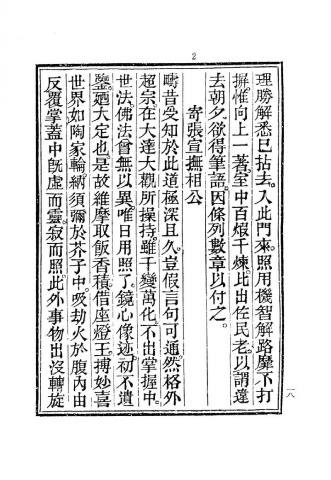 2
理勝解悉已拈去入此門來照用機智解路靡不打
摒惟向上一著室中百煆千煉比出佐民老以謂違
去朝夕欲得筆語因條列數章以付之
寄張宣撫相公
疇昔受知於此道極深且久豈假言句可通然格外
超宗在大達大觀所操持雖千變萬化不出掌握中
世法佛法曾無以異唯日用照了鏡心像迹初不遺
鑒廼大定也是故維摩取飯香積借座燈王搏妙喜
世界如陶家輪納須彌於芥子中吸劫火於腹內由
反覆掌蓋中旣虛而靈寂而照此外事物出沒轉旋
一八